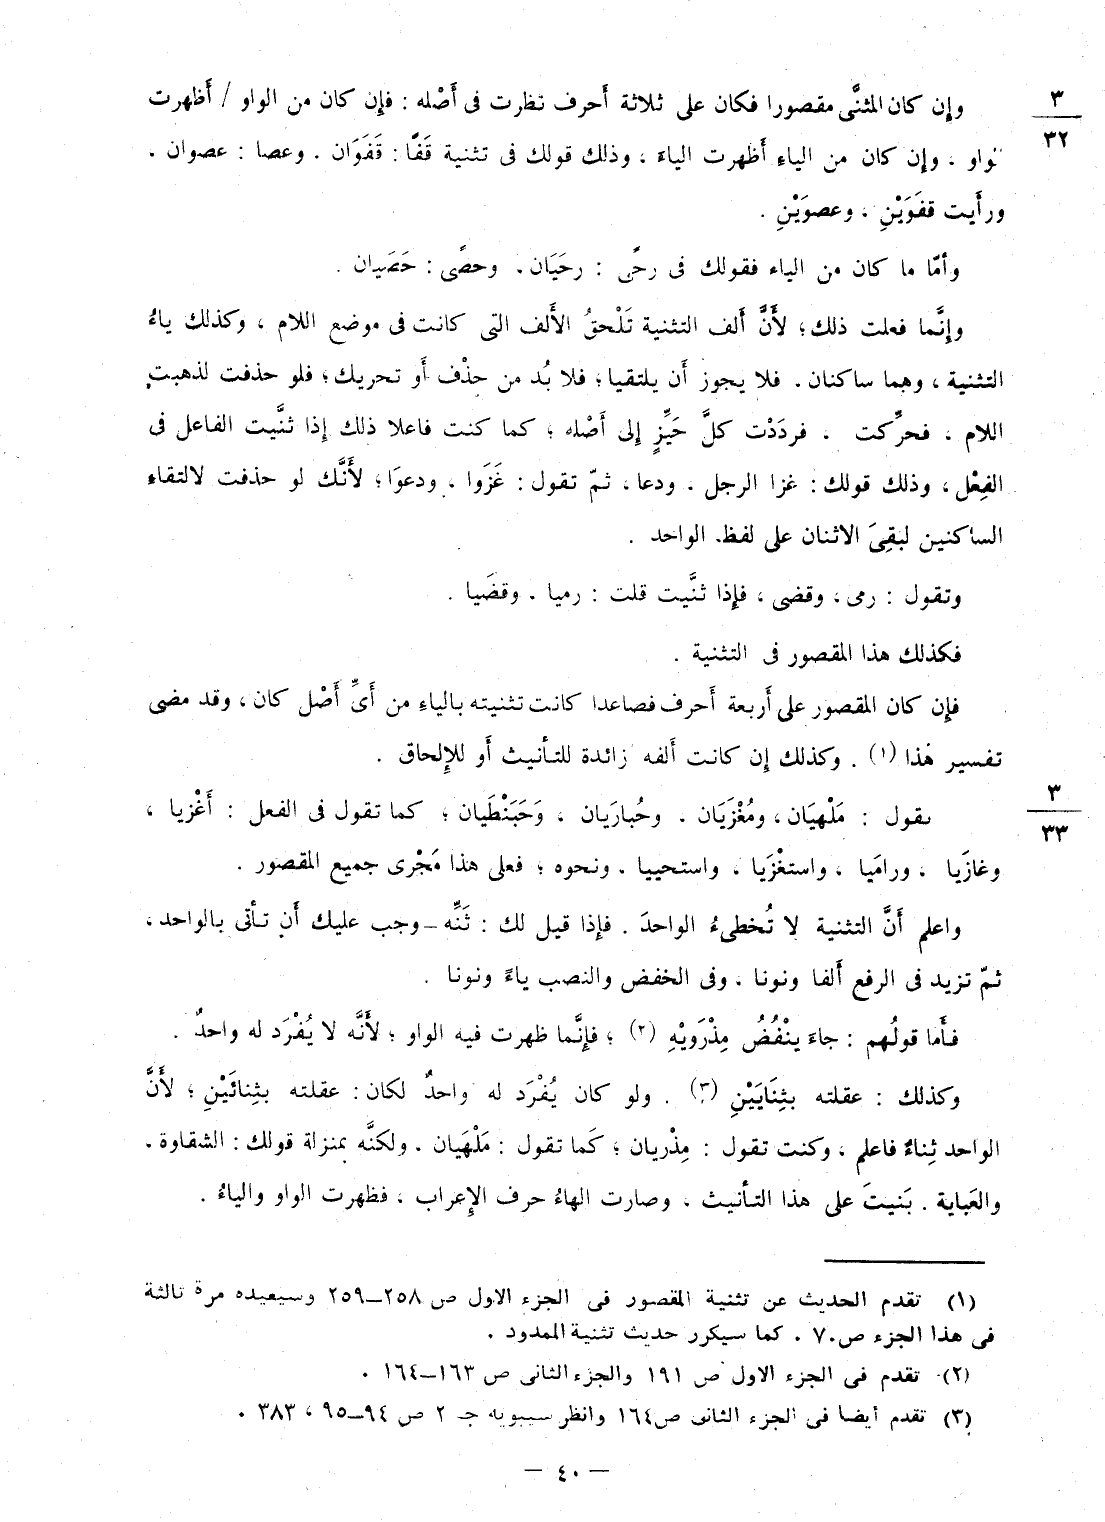 وإن كان المثنَّى مقصورا فكان على ثلاثة أَحرف نظرت فى أَصْله : فإن كان من الواو / أَظهرت
٣
٣٢
الواو ، وإن كان من الياءِ أَظهرت الياءَ ، وذلك قولك فى تثنية قَفًا : قَفَوَان . وعصا : عصوان .
ورأَيت قفَوَيْنِ ، وعصوَيْنِ .
وأمّا ما كان من الياء فقولك فى رحًى : رحَيَان . وحصًى : حَصَيان .
وإنَّما فعلت ذلك ؛ لأَنَّ ألف التثنية تَلْحقُ الأَلف التى كانت فى موضع اللام ، وكذلك ياءُ
التثنية ، وهما ساكنان . فلا يجوز أَن يلتقيا ؛ فلا بُد من حذْف أَو تحريك ؛ فلو حذفت لذهبت
اللام ، فحرِّكت ، فردَدْت كلَّ حَيِّزٍ إلى أَصْله ؛ كما كنت فاعلا ذلك إذا ثنَّيت الفاعل فى
الفِعْل ، وذلك قولك : غزا الرجل . ودعا ، ثمّ تقول : غَزَوا ، ودعوَا ؛ لأَنَّك لو حذفت لالتقاءِ
الساكنين لبقِىَ الاثنان على لفظ الواحد .
وتقول : رمى ، وقضى ، فإذا ثنَّيت قلت : رميا . وقضَيا .
فكذلك هذا المقصور فى التثنية .
فإن كان المقصور على أَربعة أَحرف فصاعدا كانت تثنيته بالياءِ من أَىِّ أَصْل كان ، وقد مضى
تفسير هٰذا (١) . وكذلك إن كانت ألفه زائدة للتأنيث أَو للإلحاق .
٣
٣٣
تقول : مَلْهيَان ، ومُغْزَيَان . وحُبارَيان ، وَحَبَنْطَيان ؛ كما تقول فى الفعل : أَغْزيا ،
وغازَيا ، ورامَيا ، واستغْزَيا ، واستحييا . ونحوه ؛ فعلى هذا مَجْرى جميع المقصور .
واعلم أَنَّ التثنية لا تُخطىءُ الواحدَ . فإذا قيل لك : ثَنِّه – وجب عليك أَن تأتى بالواحد ،
ثمّ تزيد فى الرفع أَلفا ونونا ، وفى الخفض والنصب ياءً ونونا .
فأَما قولُهم : جاءَ ينْفُضُ مِذْرَويْهِ (٢) ؛ فإنَّما ظهرت فيه الواو ؛ لأَنَّه لا يُفْرَد له واحدٌ .
وكذلك : عقلته بثِنَايَيْنِ (٣) . ولو كان يُفْرَد له واحدٌ لكان : عقلته بثِنائَيْنِ ؛ لأَنَّ
الواحد ثِناءٌ فاعلم ، وكنت تقول : مِذْريان ؛ كَما تقول : مَلْهَيان . ولكنَّه بمنزلة قولك : الشقاوة .
والعَباية . بَنيتَ على هذا التأنيث ، وصارت الهاءُ حرف الإعراب ، فظهرت الواو والياءُ .
(١) تقدم الحديث عن تثنية المقصور فى الجزء الاول ص ٢٥٨–٢٥٩ وسيعيده مرة ثالثة
فى هذا الجزء ص٧٠ . كما سيكرر حديث تثنية الممدود .
(٢) تقدم فى الجزء الاول ص ١٩١ والجزء الثانى ص ١٦٣–١٦٤ .
(٣) تقدم أيضا فى الجزء الثانى ص١٦٤ وانظر سيبويه جـ ٢ ص ٩٤–٩٥ ، ٣٨٣ .
– ٤٠ –